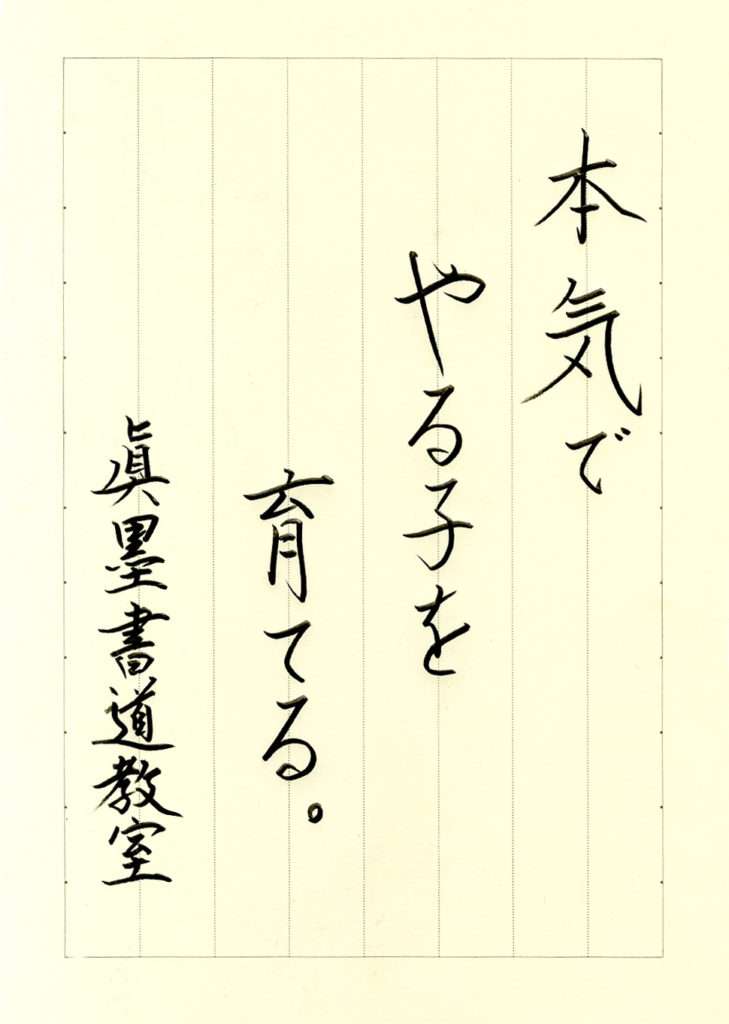 本気で
やる子を
育てる。
眞墨書道教室